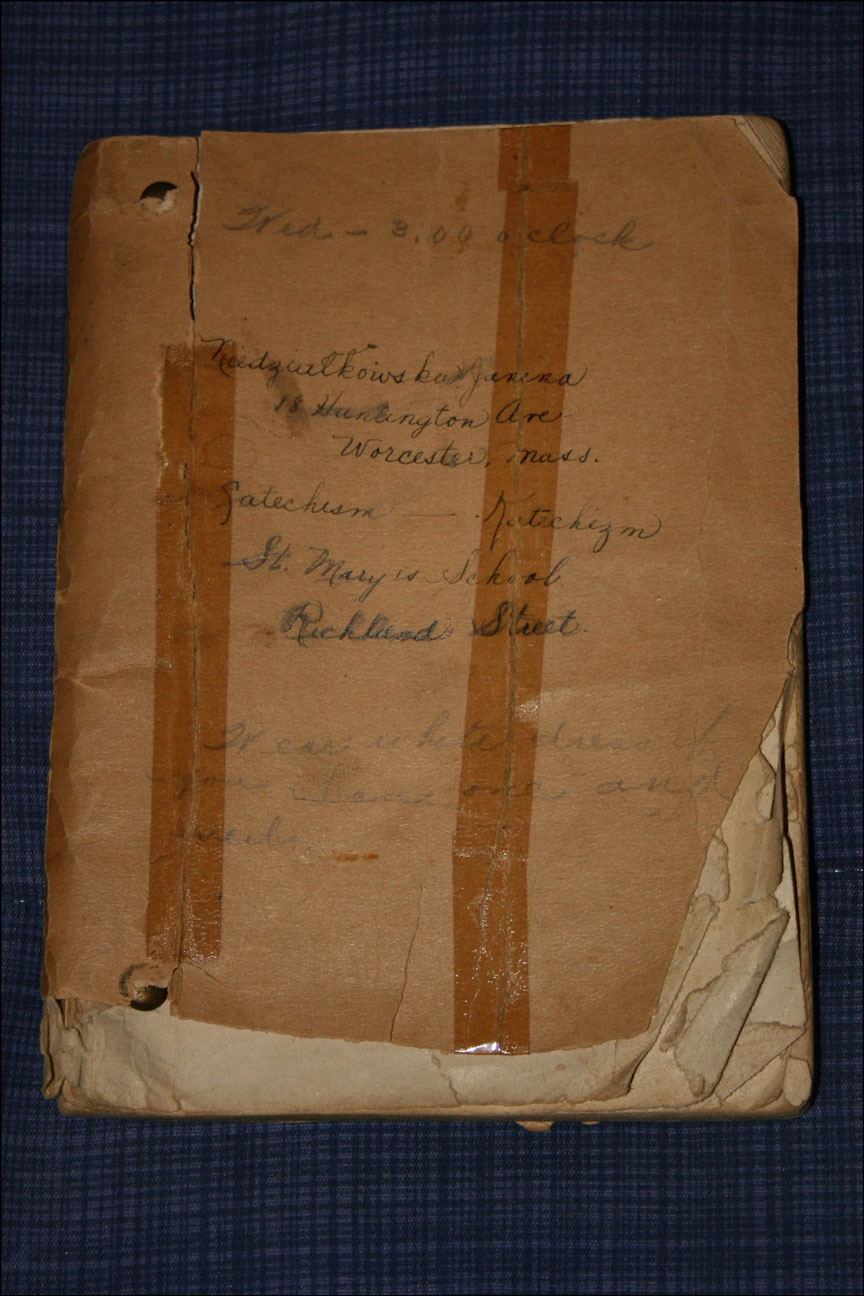 Wed - 3:00 o'clock
Niedzialkowska Janina
18 Huntington Ave
Worcester, Mass.
Catechism — Katechizm
St. Mary's School
Richland Street.
Wear white dress if
you have one and
veil.